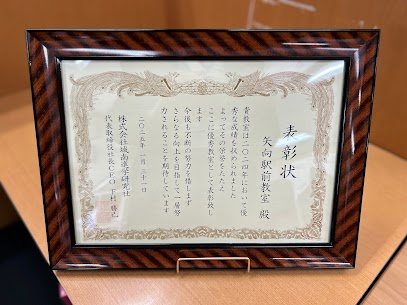 表彰状
矢向駅前教室 殿
貴教室は二〇二四年において優
秀な成績を収められました
よってその栄誉をたたえ
ここに優秀教室として表彰致し
ます
今後も不断の努力を惜しまず
さらなる向上を目指して一層努
力されることを期待しています
二〇二五年 一月 三十一日
株式会社城南進学研究社
代表取締役社長CEO 下村